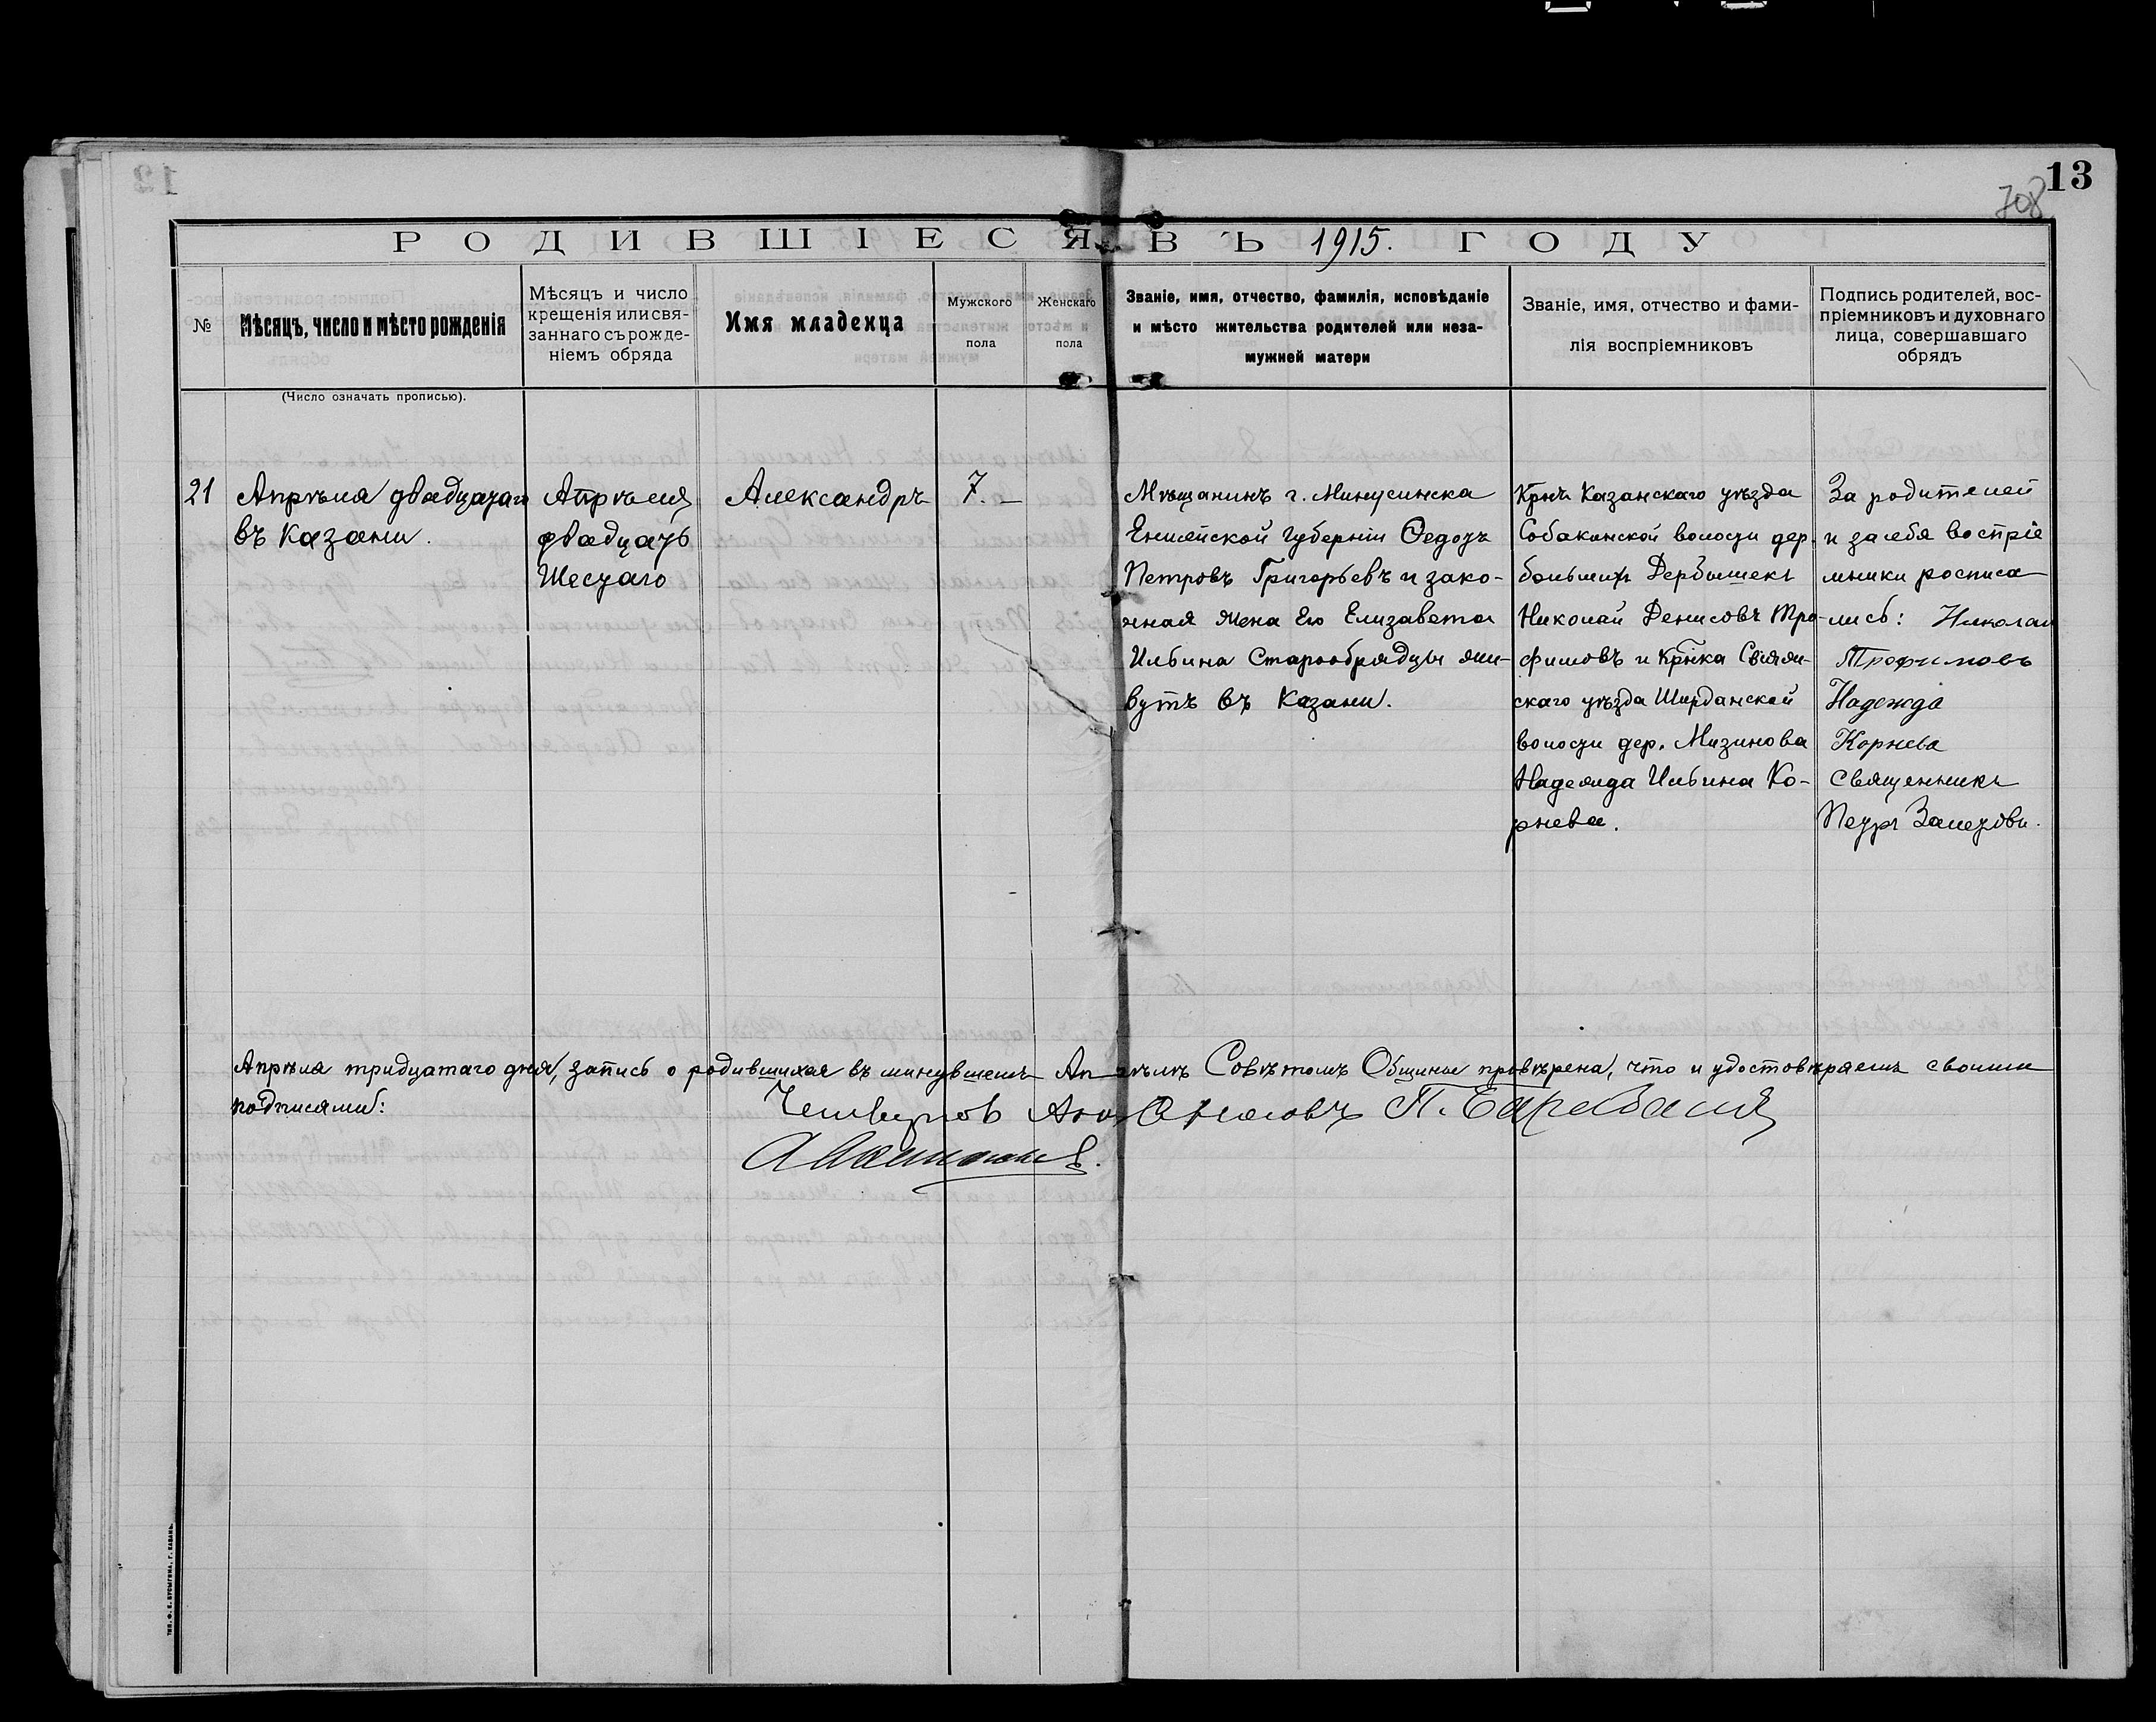 13
708
РОДИВШІЕСЯ ВЪ 1915. ГОДУ
№
Мѣсяцъ, число и мѣсто рожденія
Мѣсяцъ и число
крещенія или свя-
заннаго съ рожде-
ніемъ обряда
Имя младенца
Мужского
пола
Женскаго
пола
Званіе, имя, отчество, фамилія, исповѣданіе
и мѣсто жительства родителей или неза-
мужней матери
Званіе, имя, отчество и фами-
лія воспріемниковъ
Подпись родителей, вос-
пріемниковъ и духовнаго
лица, совершавшаго
обрядъ
(Число означать прописью).
21
Апрѣля двадцатаго
въ Казани.
Апрѣля
двадцать
Шестаго
Александръ
7. —
Мѣщанинъ г. Минусинска
Енисейской губерніи Ѳедотъ
Петровъ Григорьевъ и зако-
нная жена Его Елизавета
Ильина Старообрядцы жи-
вутъ въ Казани.
Крнъ Казанскаго уѣзда
Собакинской волости дер.
большихъ Дербышекъ
Николай Денисовъ Тро-
фимовъ и Крнка Свіяж-
скаго уѣзда Ширданской
волости дер. Мизинова
Надежда Ильина Ко-
рнева.
За родителей
и за себя воспріе
мники росписа
лись: Николай
Трофимовъ
Надежда
Корнева
Священникъ
Петръ Залетовъ.
Апрѣля тридцатаго дня, запись о родившихся въ минувшемъ Апрѣлѣ Совѣтомъ Общины провѣрена, что и удостовѣряемъ своими
подписями: